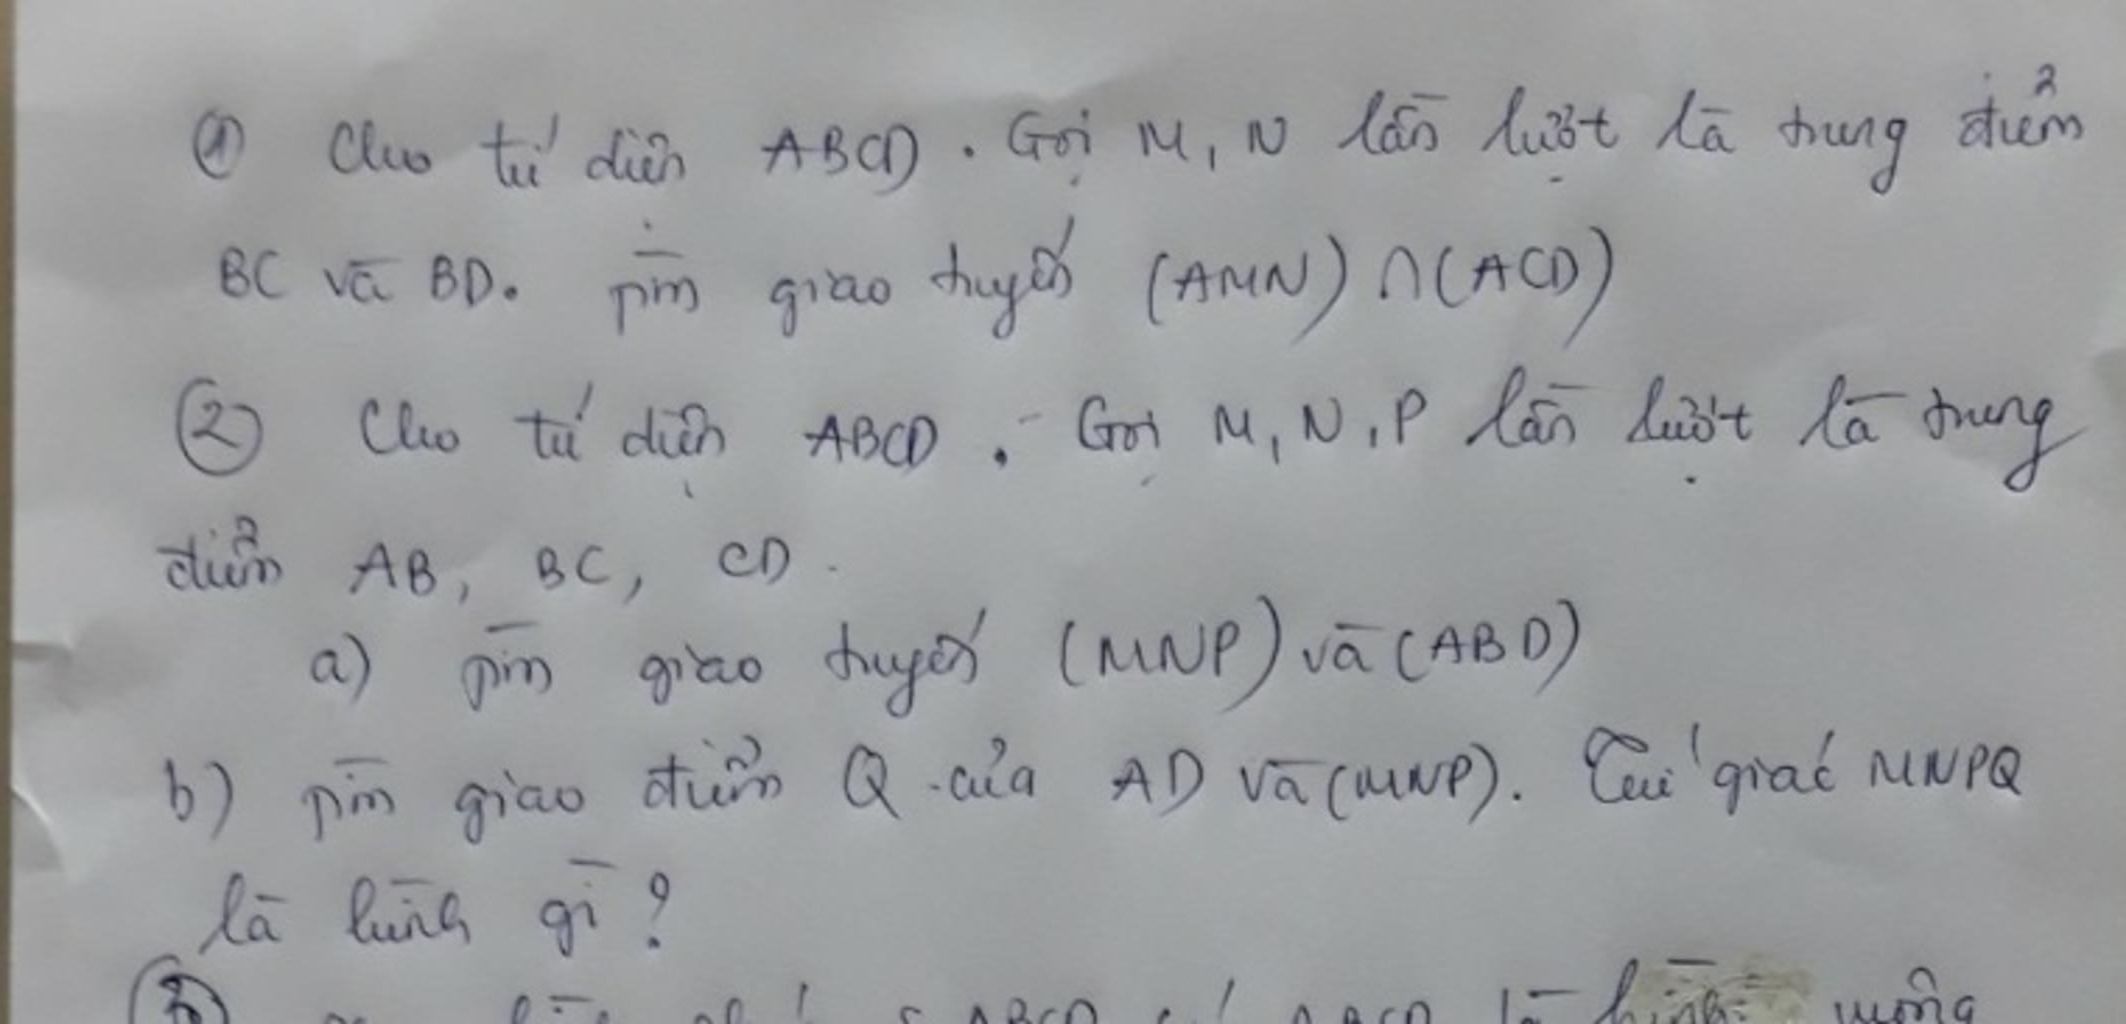 ① Cho tứ diện ABCD. Gọi M, N lần lượt là trung điểm
BC và BD. Tìm giao tuyến (AMN) ∩ (ACD)
② Cho tứ diện ABCD. Gọi M, N, P lần lượt là trung
điểm AB, BC, CD.
a) Tìm giao tuyến (MNP) và (ABD)
b) Tìm giao điểm Q của AD và (MNP). Tứ giác MNPQ
là hình gì?
ABCD ABCD là hình vuông